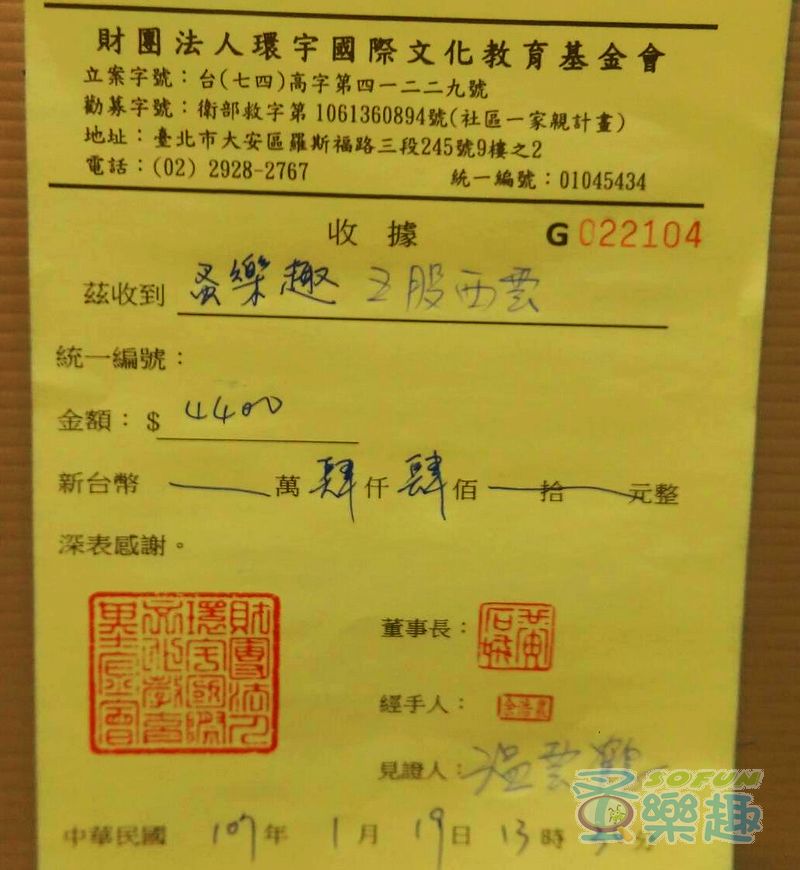 財團法人環宇國際文化教育基金會
立案字號：台(七四)高字第四一二二九號
勸募字號：衛部救字第1061360894號(社區一家親計畫)
地址：臺北市大安區羅斯福路三段245號9樓之2
電話：(02) 2928-2767 統一編號：01045434
收據 G 022104
茲收到 蚤樂趣 五股西雲
統一編號：
金額：$ 4400
新台幣 萬肆仟肆佰 拾 元整
深表感謝。
財團法人環宇國際文化教育基金會
董事長：
經手人：
見證人：溫雲
SOFUN
蚤樂趣
中華民國 107年 1月 19日 13時 分